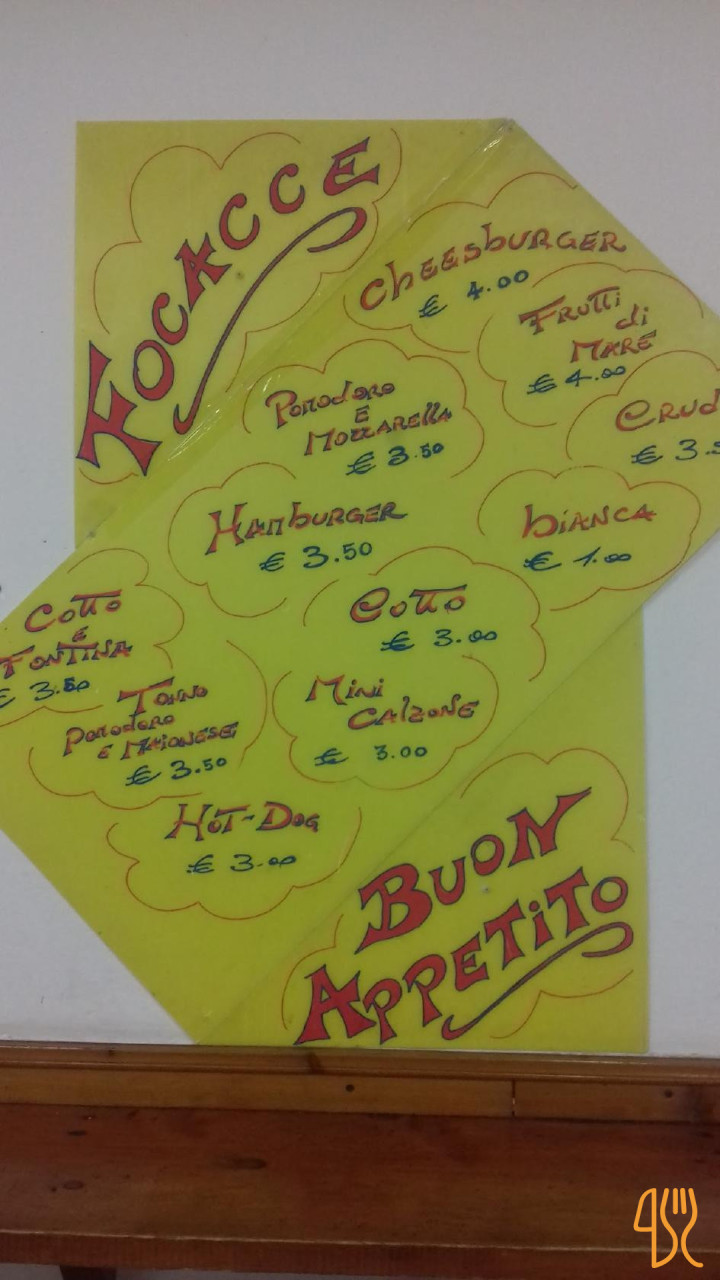 FOCACCE
CHEESBURGER
€ 4.00
FRUTTI
di
MARE
€ 4.00
POMODORO
E
MOZZARELLA
€ 3.50
CRUD
€ 3.5
HAMBURGER
€ 3.50
BIANCA
€ 1.00
COTTO
E
FONTINA
€ 3.50
COTTO
€ 3.00
TONNO
POMODORO
E MAIONESE
€ 3.50
MINI
CALZONE
€ 3.00
HOT-DOG
€ 3.00
BUON
APPETITO